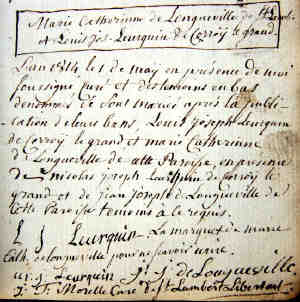 Marie Catherinne de Longueville de St Lamb.
et Louis Jos. Leurquin de Corroÿ le grand
L'an 1814 le 1 de maÿ en présence de moi
soussigné Curé et des temoins en bas
denommés se sont mariés après la publi-
cation de leurs bans, Louis Joseph Leurquin
de Corroÿ le grand et marie Catherinne
de Longueville de cette Paroisse, en presence
de nicolas joseph Leurquin de Corroÿ le
grand et de jean Joseph de Longueville de
Cette Paroisse temoins à ce requis.
L J Leurquin La marque de marie
Cath. de longueville pour ne savoir ecrire.
n. j. Leurquin J. J. de Longueville
J. F. Morelle Curé de St Lambert Libersart